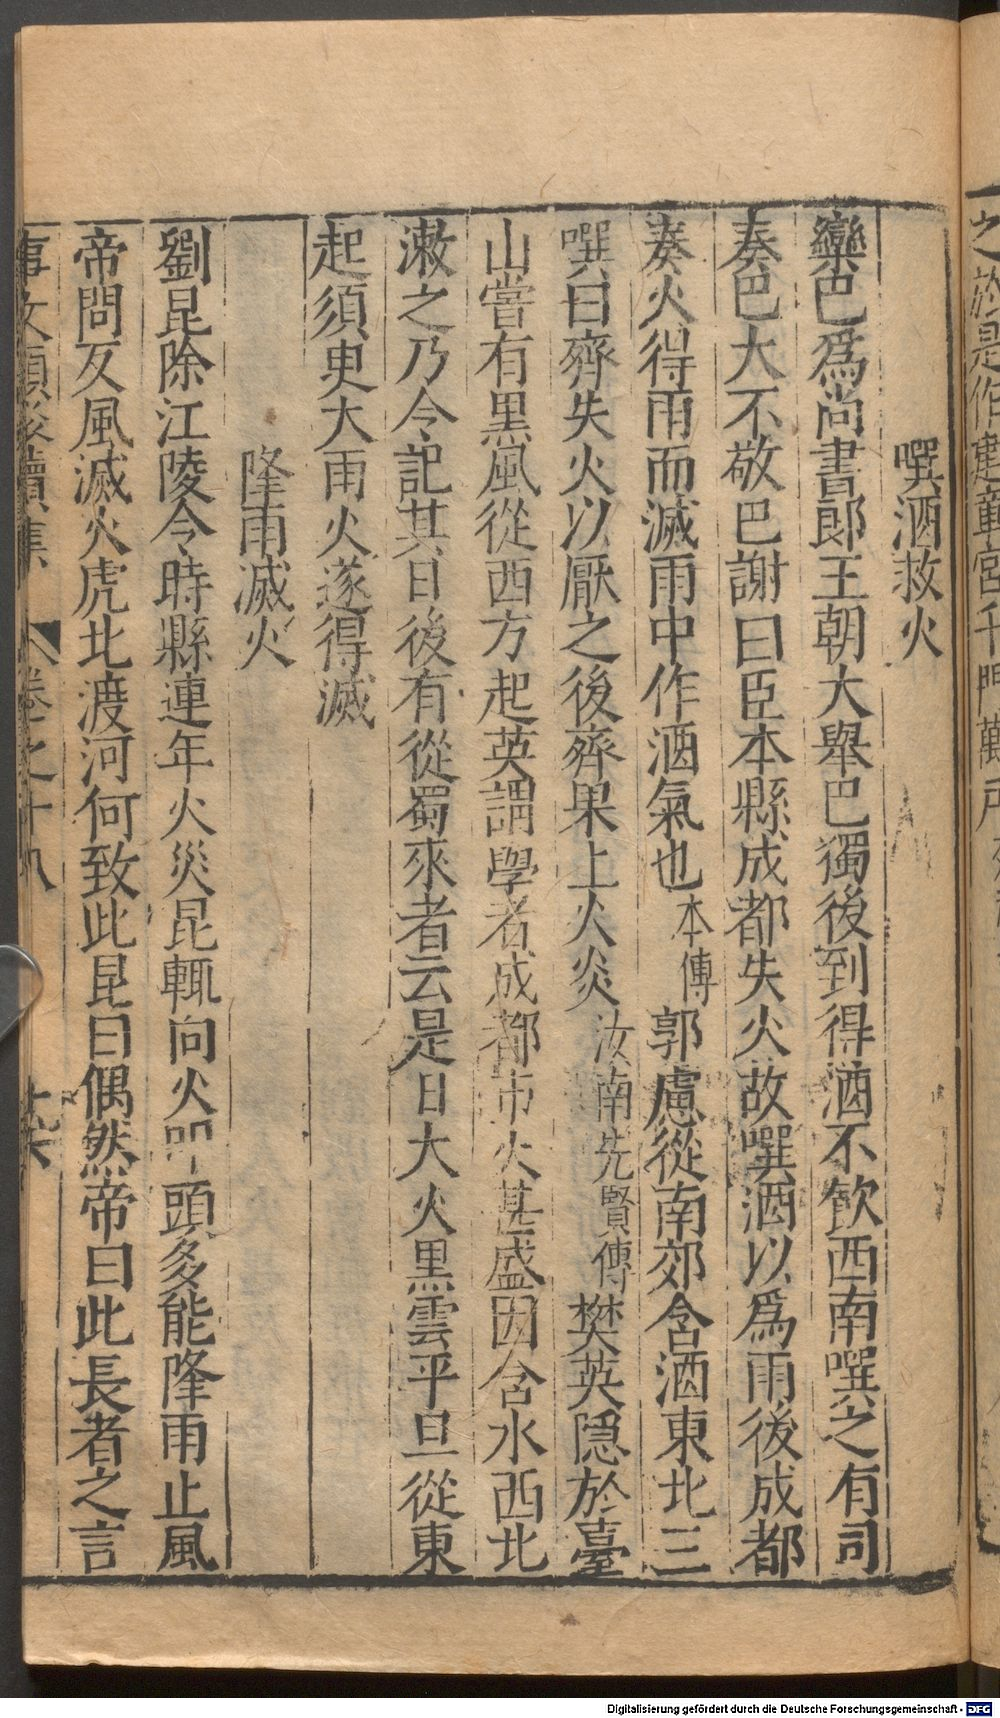 之於是作建章宮千門萬戶
噀酒救火
欒巴爲尚書郎王朝大舉巴獨後到得酒不飲西南噀之有司
奏巴大不敬巴謝曰臣本縣成都失火故噀酒以爲雨後成都
奏火得雨而滅雨中作酒氣也本傳郭慮從南郊含酒東北三
噀曰齊失火以厭之後齊果上火炎汝南先賢傳樊英隱於臺
山嘗有黑風從西方起英謂學者成都市火甚盛因含水西北
漱之乃令記其日後有從蜀來者云是日大火黑雲平旦從東
起須臾大雨火遂得滅
降雨滅火
劉昆除江陵令時縣連年火災昆輒向火叩頭多能降雨止風
帝問反風滅火虎北渡河何致此昆曰偶然帝曰此長者之言
事文類聚續集 卷之十八 十六
Digitalisierung gefördert durch die Deutsche Forschungsgemeinschaft - DFG